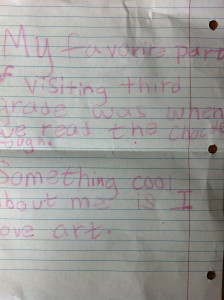 My favorite part
of visiting third
grade was when
we read the
Something cool
about me is I
love art.